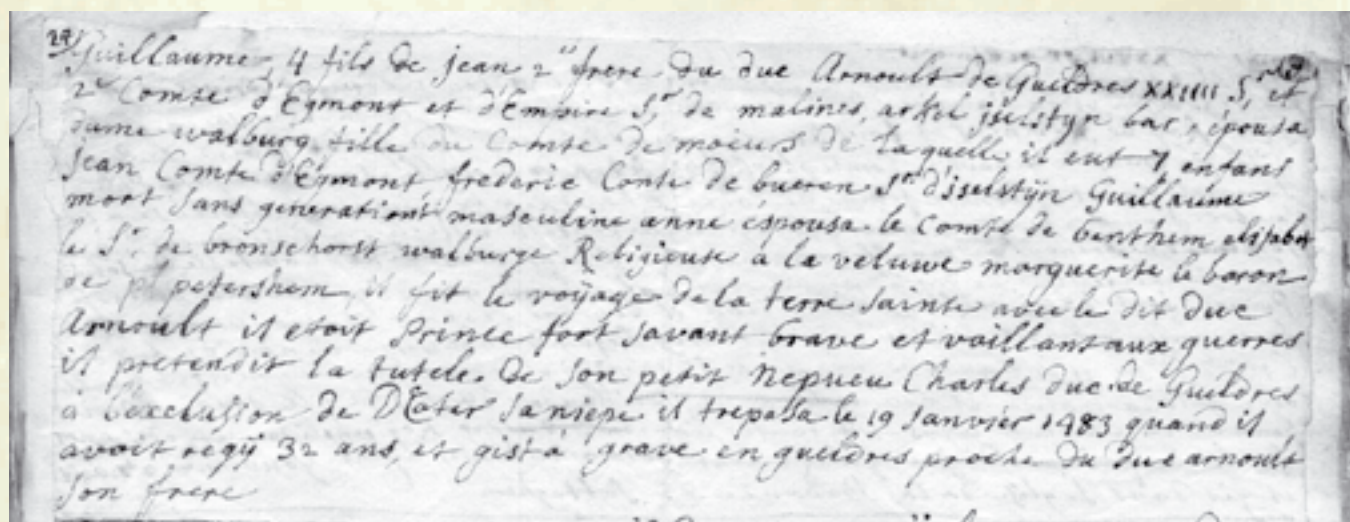 29 Guillaume, 4 fils de jean 2e frere du duc Arnoult de Gueldres XXIIII Sr et
2e Comte d'Egmont et d'Empire Sr de malines, arkel jselstyn bar, épousa
dame walburg fille du Comte de moeurs de laquelle il eut 7 enfans
jean Comte d'Egmont, frederic Conte de bueren Sr d'isselstÿn Guillaume
mort sans generationt masculine anne espousa le Comte de benthem elisabet
le Sr de bronschorst walburge Religieuse a la veluwe marguerite le baron
de petershem, il fit le voÿage de la terre sainte avec le dit duc
Arnoult il etoit Prince fort savant brave et vaillant aux guerres
il pretendit la tutele de son petit Nepueu Charles duc de Gueldres
à l'exclusion de sa niepe il trepasa le 19 Janvier 1483 quand il
avoit regÿ 32 ans, et gist à grave en gueldres proche du duc arnoult
son frere